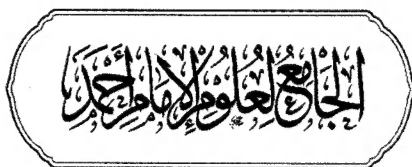 الجَامِعُ لِعُلُومِ الإِمَامِ أَحْمَد